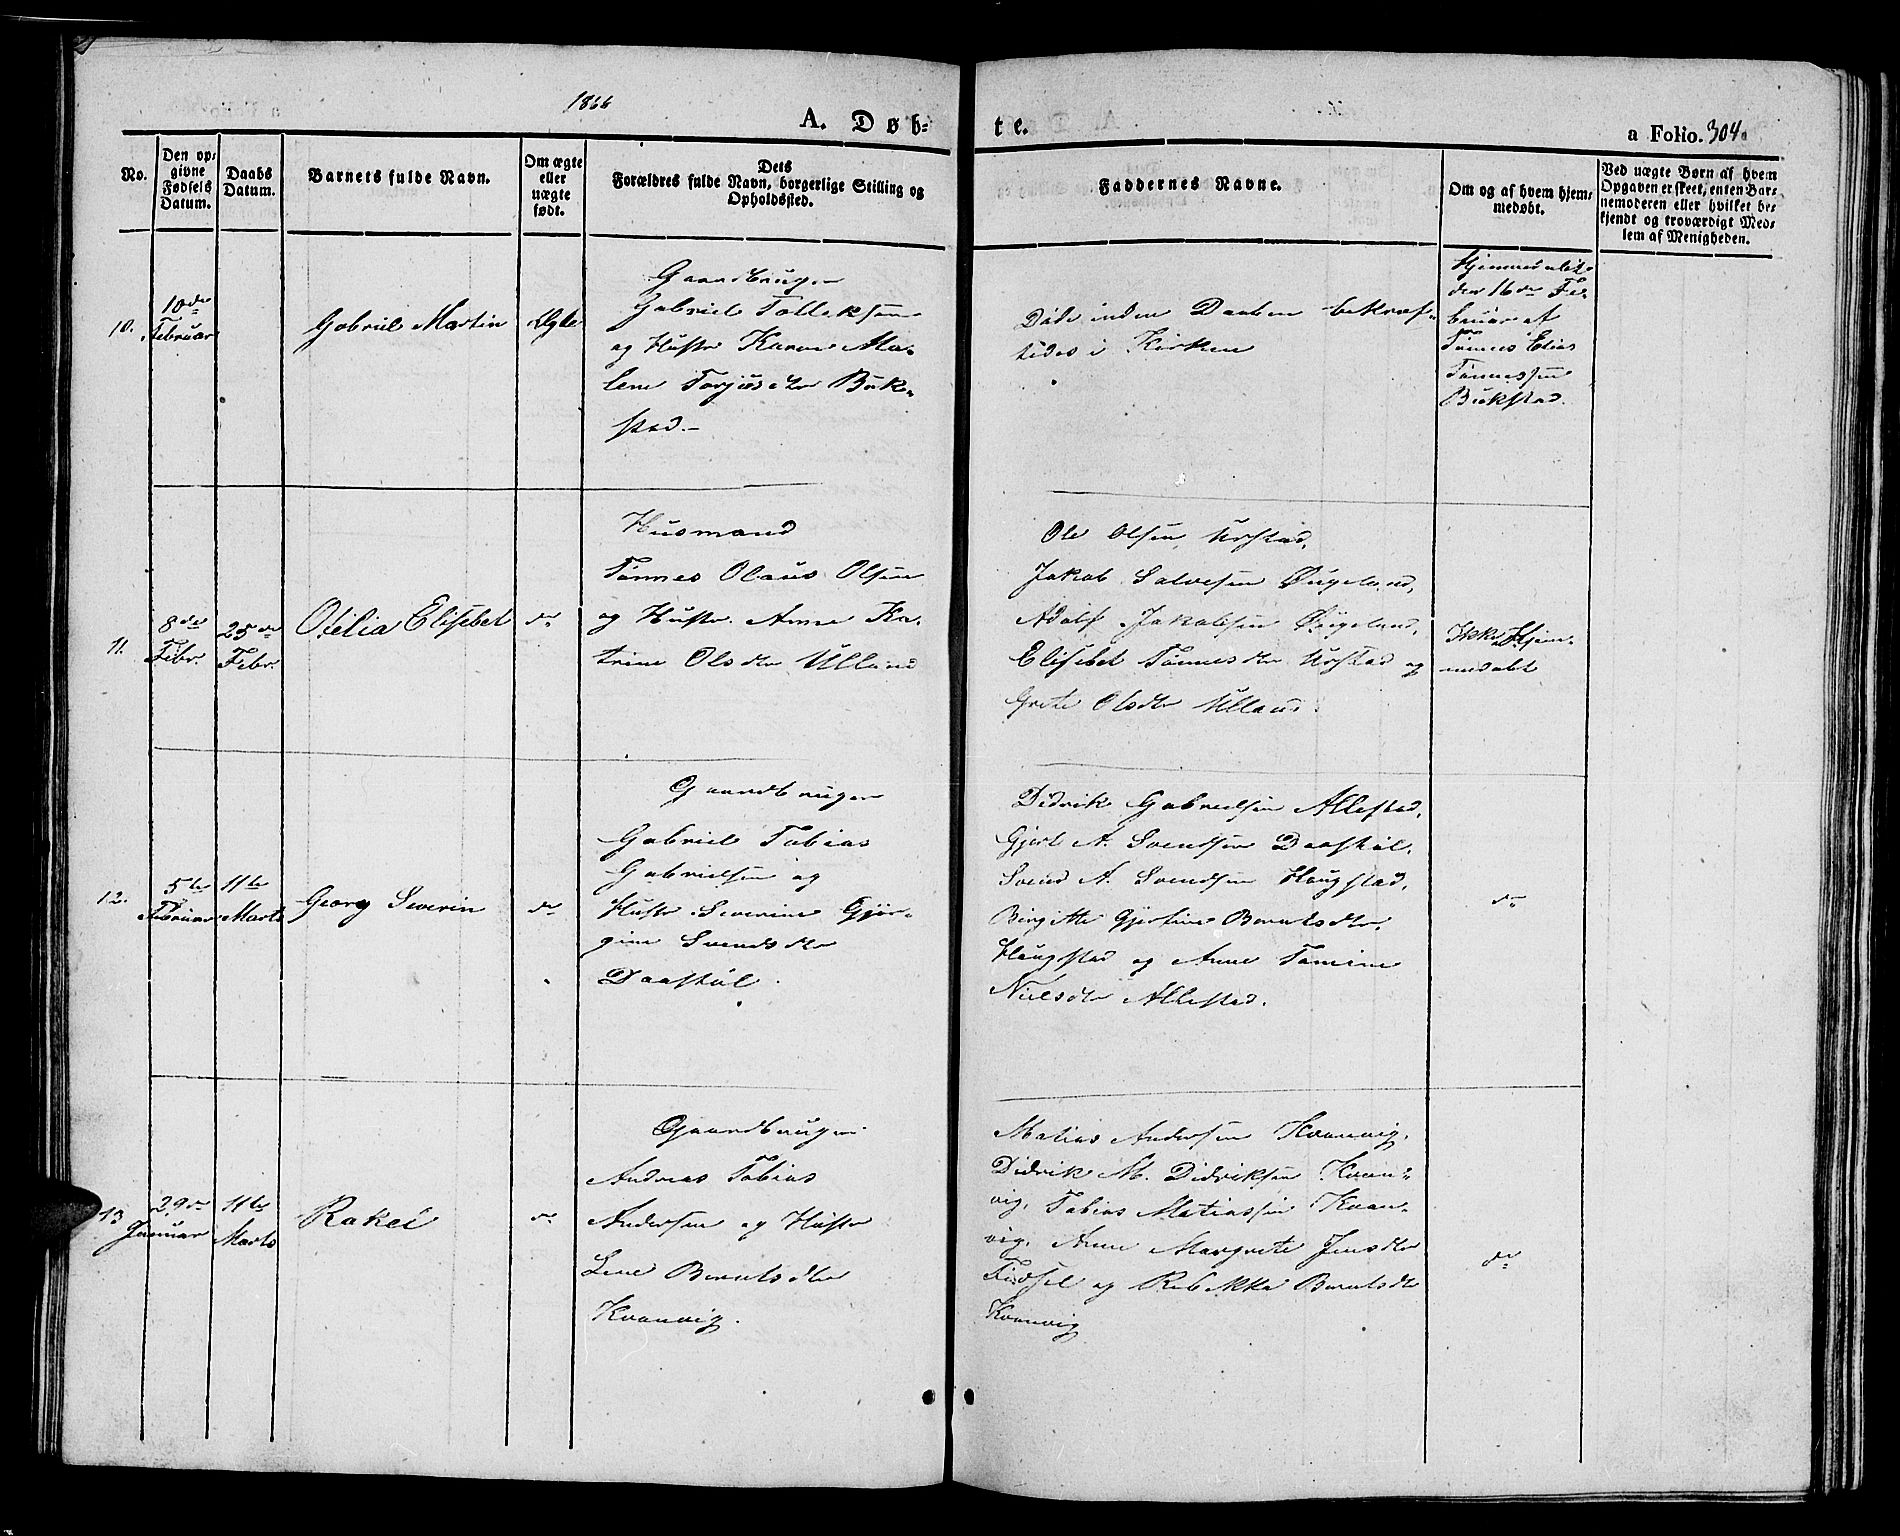 1866
A. Døb=
te.
a Folio. 304.
No.
Den op=
givne
Fødsels
Datum.
Daabs
Datum.
Barnets fulde Navn.
Om ægte
eller
uægte
født.
Dets
Forældres fulde Navn, borgerlige Stilling og
Opholdssted.
Faddernes Navne.
Om og af hvem hjem=
medøbt.
Ved uægte Børn af hvem
Opgaven er skeet, enten Bar=
nemoderen eller hvilket be=
kjendt og troværdigt Med=
lem af Menigheden.
10.
10de
Februar
Gabriel Martin
Ægte
Gaardbruger
Gabriel Tolleksen
og Hustr Karen Ma=
lene Torjusdtr Buk=
stad.
Døde inden Daaben bekræf=
tedes i Kirken
Hjemmedøbt
den 16de Fe=
bruar af
Tønnes Elias
Tønnessen
Bukstad.
11.
8de
Febr.
25de
Febr.
Otilia Elisebet
do
Husmand
Tønnes Olaus Olsen
og Hustr. Anne Ka=
trine Olsdtr Ulland
Ole Olsen, Urstad,
Jakob Salvesen Øigeland,
Adolf Jakobsen Øigeland,
Elisebet Tønnesdtr Urstad og
Grete Olsdtr Ulland.
Ikke Hjem=
medøbt
12.
5te
Februar
11te
Marts
Georg Severin
do
Gaardbruger
Gabriel Tobias
Gabrielsen og
Hustr. Severine Gjør=
gine Svendsdtr
Daastøl.
Didrik Gabrielsen Allestad,
Gjert A. Svendsen Daastøl.
Svend A. Svendsen Haugstad,
Birgitte Gjertine Berntsdtr.
Haugstad og Anne Tomine
Nielsdtr Allestad.
do
13
29de
Januar
11te
Marts
Rakel
do
Gaardbruger
Andreas Tobias
Andersen og Hustr
Lene Berntsdtr
Kvanvig.
Matias Andersen Kvanvig,
Didrik M. Didriksen Kvan=
vig, Tobias Matiassen Kvan=
vig, Anne Margrete Jensdtr
og Rebekka Berntsdtr
Kvanvig
do